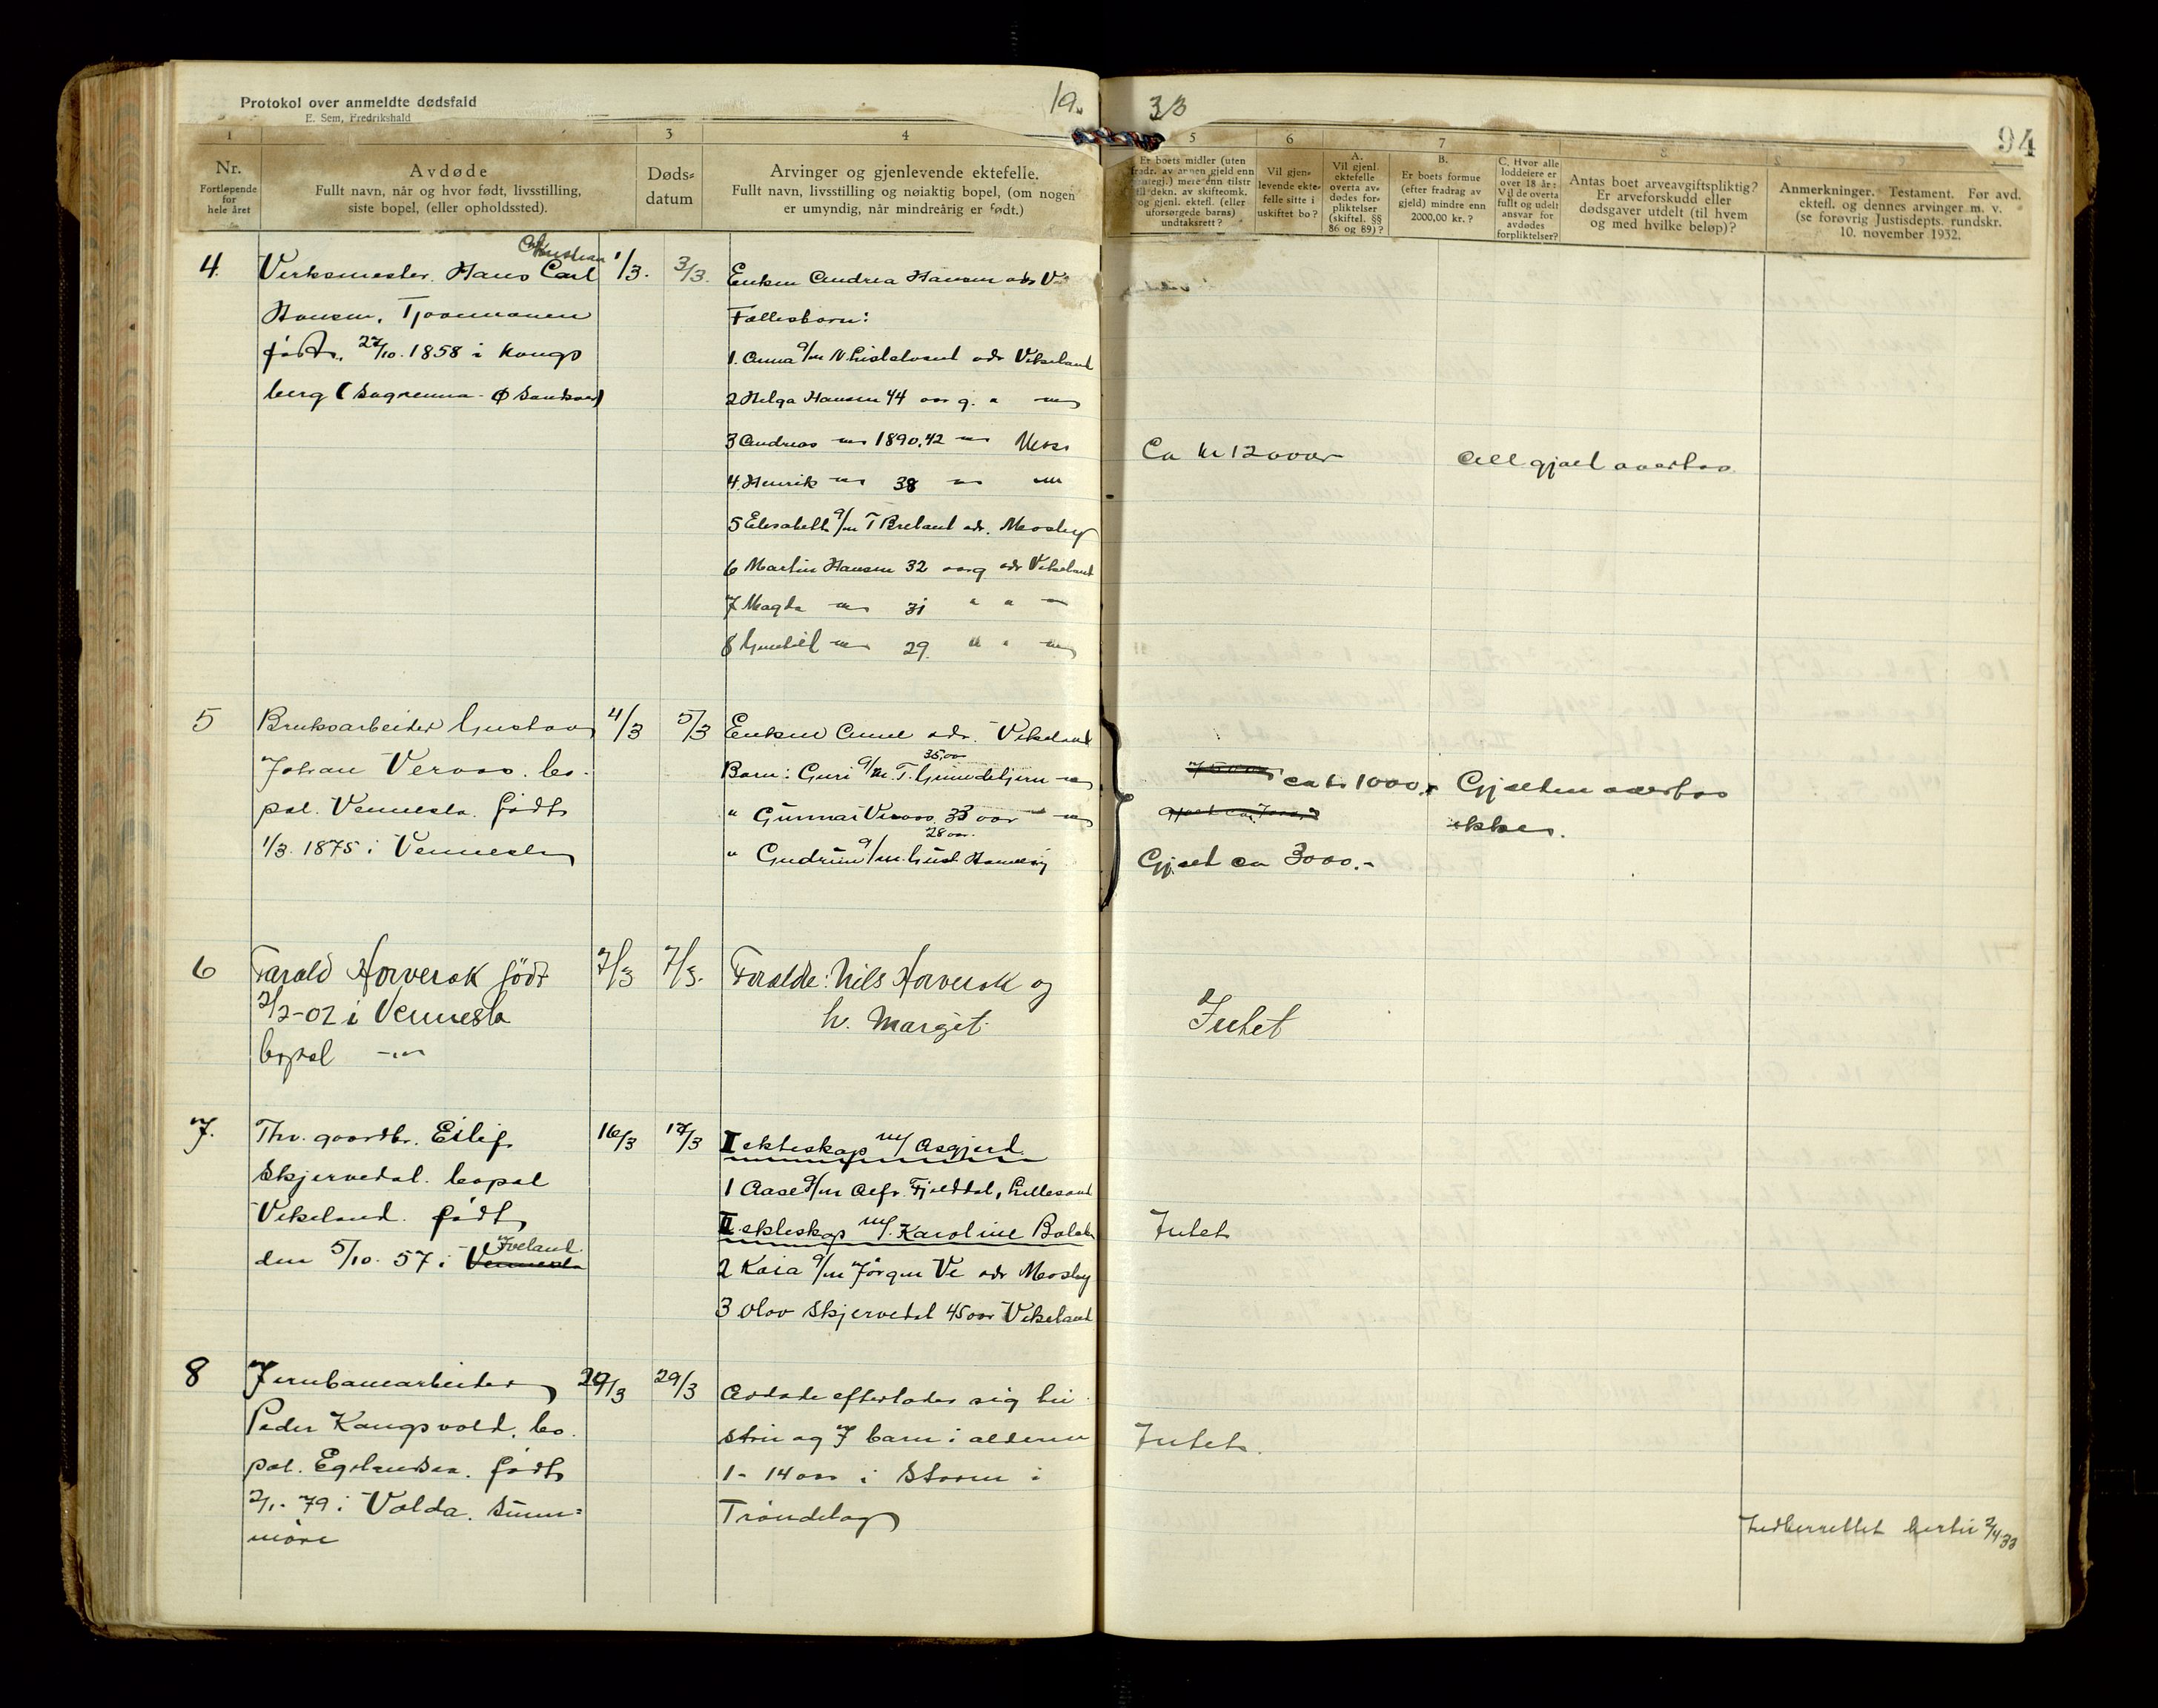 Protokol over anmeldte dødsfald
E. Sem, Fredrikshald
19
33
94
1
3
4
5
6
7
8
Nr.
Fortløpende
for
hele året
Avdøde
Fullt navn, når og hvor født, livsstilling,
siste bopel, (eller opholdssted).
Døds-
datum
Arvinger og gjenlevende ektefelle.
Fullt navn, livsstilling og nøiaktig bopel, (om nogen
er umyndig, når mindreårig er født.)
Er boets midler (uten
fradr. av annen gjeld enn
mere enn tilstr
til dekn. av skifteomk.
og gjenl. ektefl. (eller
uforsørgede barns)
undtaksrett?
Vil gjen-
levende ekte-
felle sitte i
uskiftet bo?
A.
Vil gjenl.
ektefelle
overta av-
dødes for-
pliktelser
(skiftel. §§
86 og 89)?
B.
Er boets formue
(efter fradrag av
gjeld) mindre enn
2000,00 kr.?
C. Hvor alle
loddeiere er
over 18 år:
Vil de overta
fullt og udelt
ansvar for
avdødes
forpliktelser?
Antas boet arveavgiftspliktig?
Er arveforskudd eller
dødsgaver utdelt (til hvem
og med hvilke beløp)?
Anmerkninger. Testament. Før avd.
ektefl. og dennes arvinger m. v.
(se forøvrig Justisdepts. rundskr.
10. november 1932.
4.
Christian
Verksmester. Hans Carl
Hansen,
født. 27/10. 1858 i Kongs
berg (
1/3.
3/3.
Enken Andrea Hansen adr V
Fællesbarn:
1. Anna g/m N. adr Vikeland
2 Helga Hansen 44 aar g. " —"—
3 Andreas —"— 1890, 42 —"— Moss
4. Henrik —"— 38 —"— —"—
5 Elisabeth g/m T Breland adr. Mosby
6 Martin Hansen 32 aar g adr Vikeland
7 Magda —"— 31 " " —
8 —"— 29. " " —"—
Ca kr 12000,-
All gjæld overtas
5
Bruksarbeider Gustav
Johan Veraas. bo-
pæl. Vennesla. født
1/3. 1875 i Vennesla
4/3
5/3
Enken Anne adr. Vikeland
35 aar
Barn: Guri g/m. T. —"—
" Gunnar Veraas 33 aar —"—
28 aar.
" Gudrun g/m. Gust
ca kr 1000,-
Gjæld ca 3000.-
Gjælden overtas
ikke.
6
Tarald Horverak født
2/2-02 i Vennesla
bopæl —"—
7/3
7/3.
Forældre: Nils Horverak og
h. Margit.
Intet
7.
Fhv. gaardbr. Eilif
Skjervedal. bopæl
Vikeland. født
Iveland.
den 5/10. 57 i Vennesla
16/3
17/3
I ekteskap m/ Asgjerd.
1 Aase g/m Alf. Fjelddal, Lillesand
II ekteskap m/. Karoline
2 Kaia g/m Jørgen Ve adr Mosby
3 Olav Skjervedal 45 aar Vikeland
Intet
8
Jernbanearbeider
Peder Kongsvold. bo-
pæl. Egelandsaa. født
2/1. 79 i Volda. Sunn=
møre
29/3
29/3
Avdøde efterlader sig hu
stru og 7 barn i alderen
1 - 14 aar i Støren i
Trøndelag
Intet.
Indberettet hertil 2/4 33